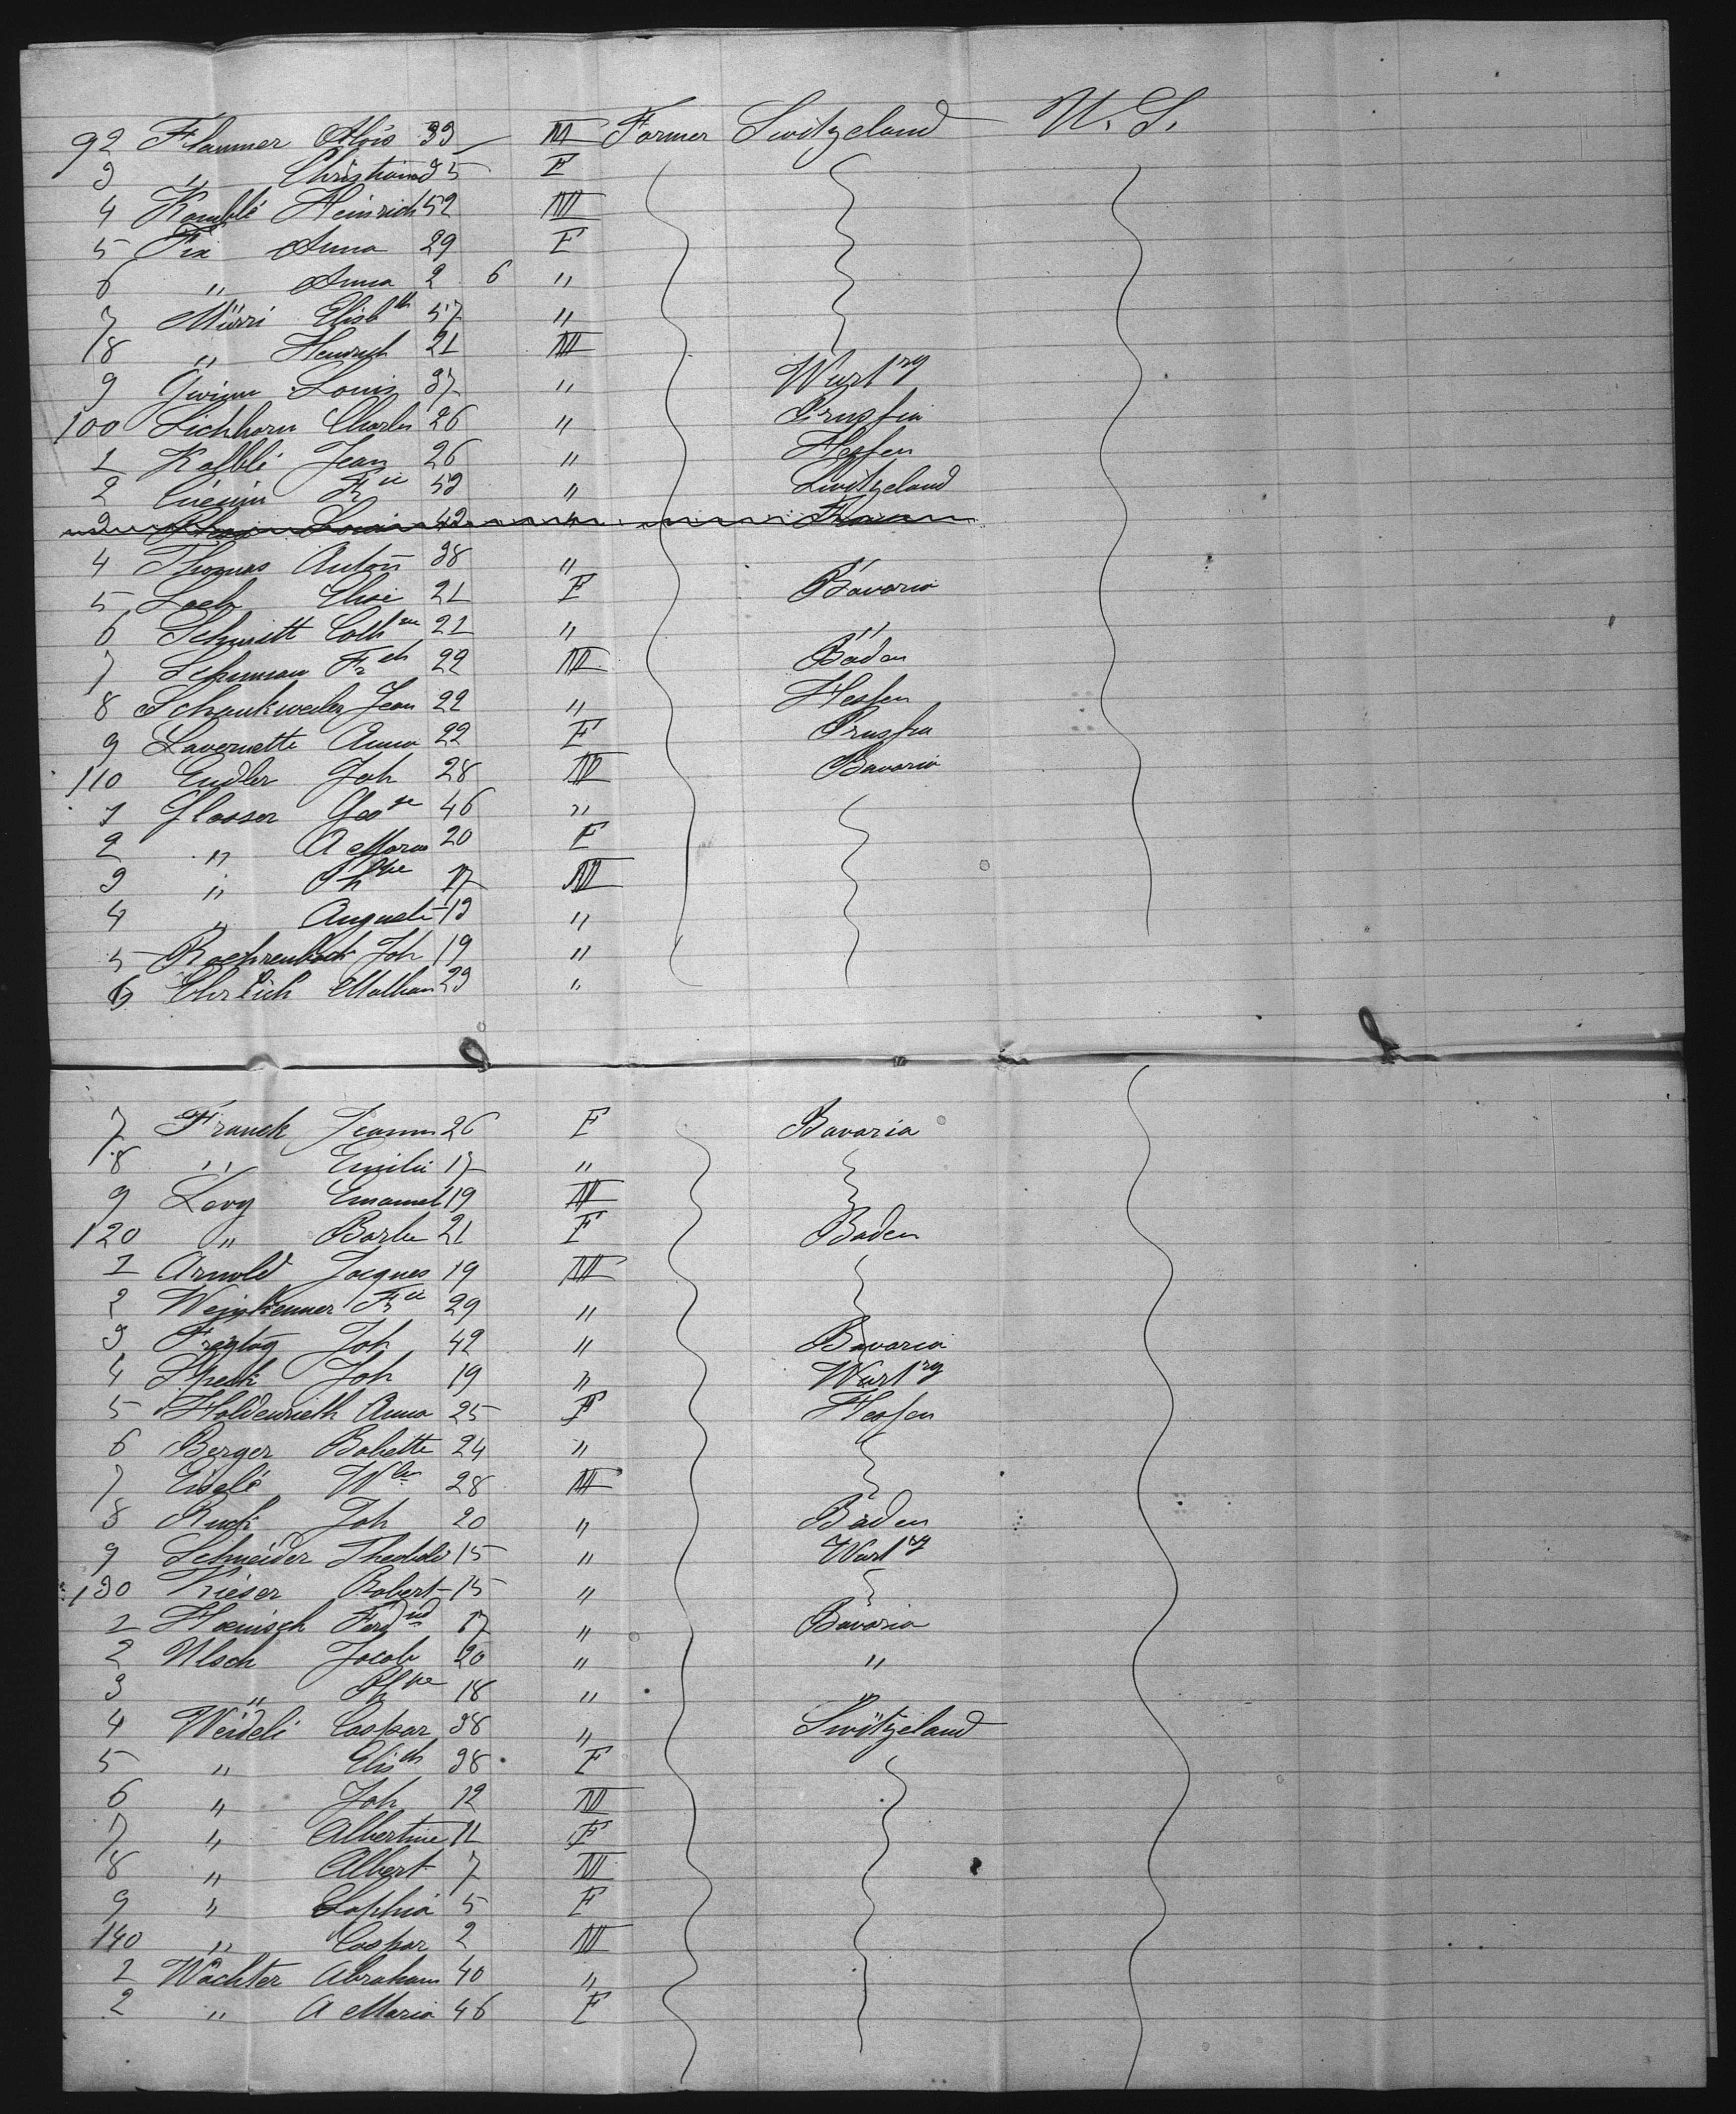 92 Flammer Alois 33 M Farmer Switzeland U.S.
3 " Christiana 35 F
4 Kamblé Heinrich 52 M
5 Fix Anna 29 F
6 " Anna 2 6 "
7 Mürri Elisbth 57 "
98 " Heinrich 21 M
9 Louis 37 " Wurtrg
100 Eichhorn Charles 26 " Prussia
1 Kalblé Jean 26 " Hessen
2 53 " Switzeland
4 Thomas Anton 38 " "
5 Loeb Elise 21 F Bavaria
6 Schmitt Cathne 21 " "
7 Schuman Frch 22 M Baden
8 Schankweiler Jean 22 " Hessen
9 Lavernette Anna 22 F Prussia
110 Endler Joh 28 M Bavaria
1 Glasser Geoge 46 "
2 " A Maria 20 F
3 " Phpe 17 M
4 " Auguste 13 "
5 Roehrenbach Joh 19 "
6 Ehrlich 23 "
7 Franck Jeanne 26 F Bavaria
8 " Emilie 17 "
9 Levy Emanuel 19 M
120 " Barbe 21 F Baden
1 Arnold Jacques 19 M
2 29 "
3 Freytag Joh 42 " Bavaria
4 Specht Joh 19 " Wurtrg
5 Holdenrieth Anna 25 F Hessen
6 Berger Babette 24 "
7 Eiselé Wlm 28 M
8 Ruck Joh 20 " Baden
9 Schneider Theobald 15 " Wurtrg
130 Kieser Robert 15 "
1 Hoenisch Ferdnd 17 " Bavaria
2 Ulsch Jacob 20 " "
3 " Phpe 18 " "
4 Weideli Caspar 38 " Switzeland
5 " Elisth 38 F
6 " Joh 12 M
7 " Albertine 11 F
8 " Albert 7 M
9 " Sophia 5 F
140 " Caspar 2 M
1 Wachter Abraham 40 "
2 " A Maria 46 F